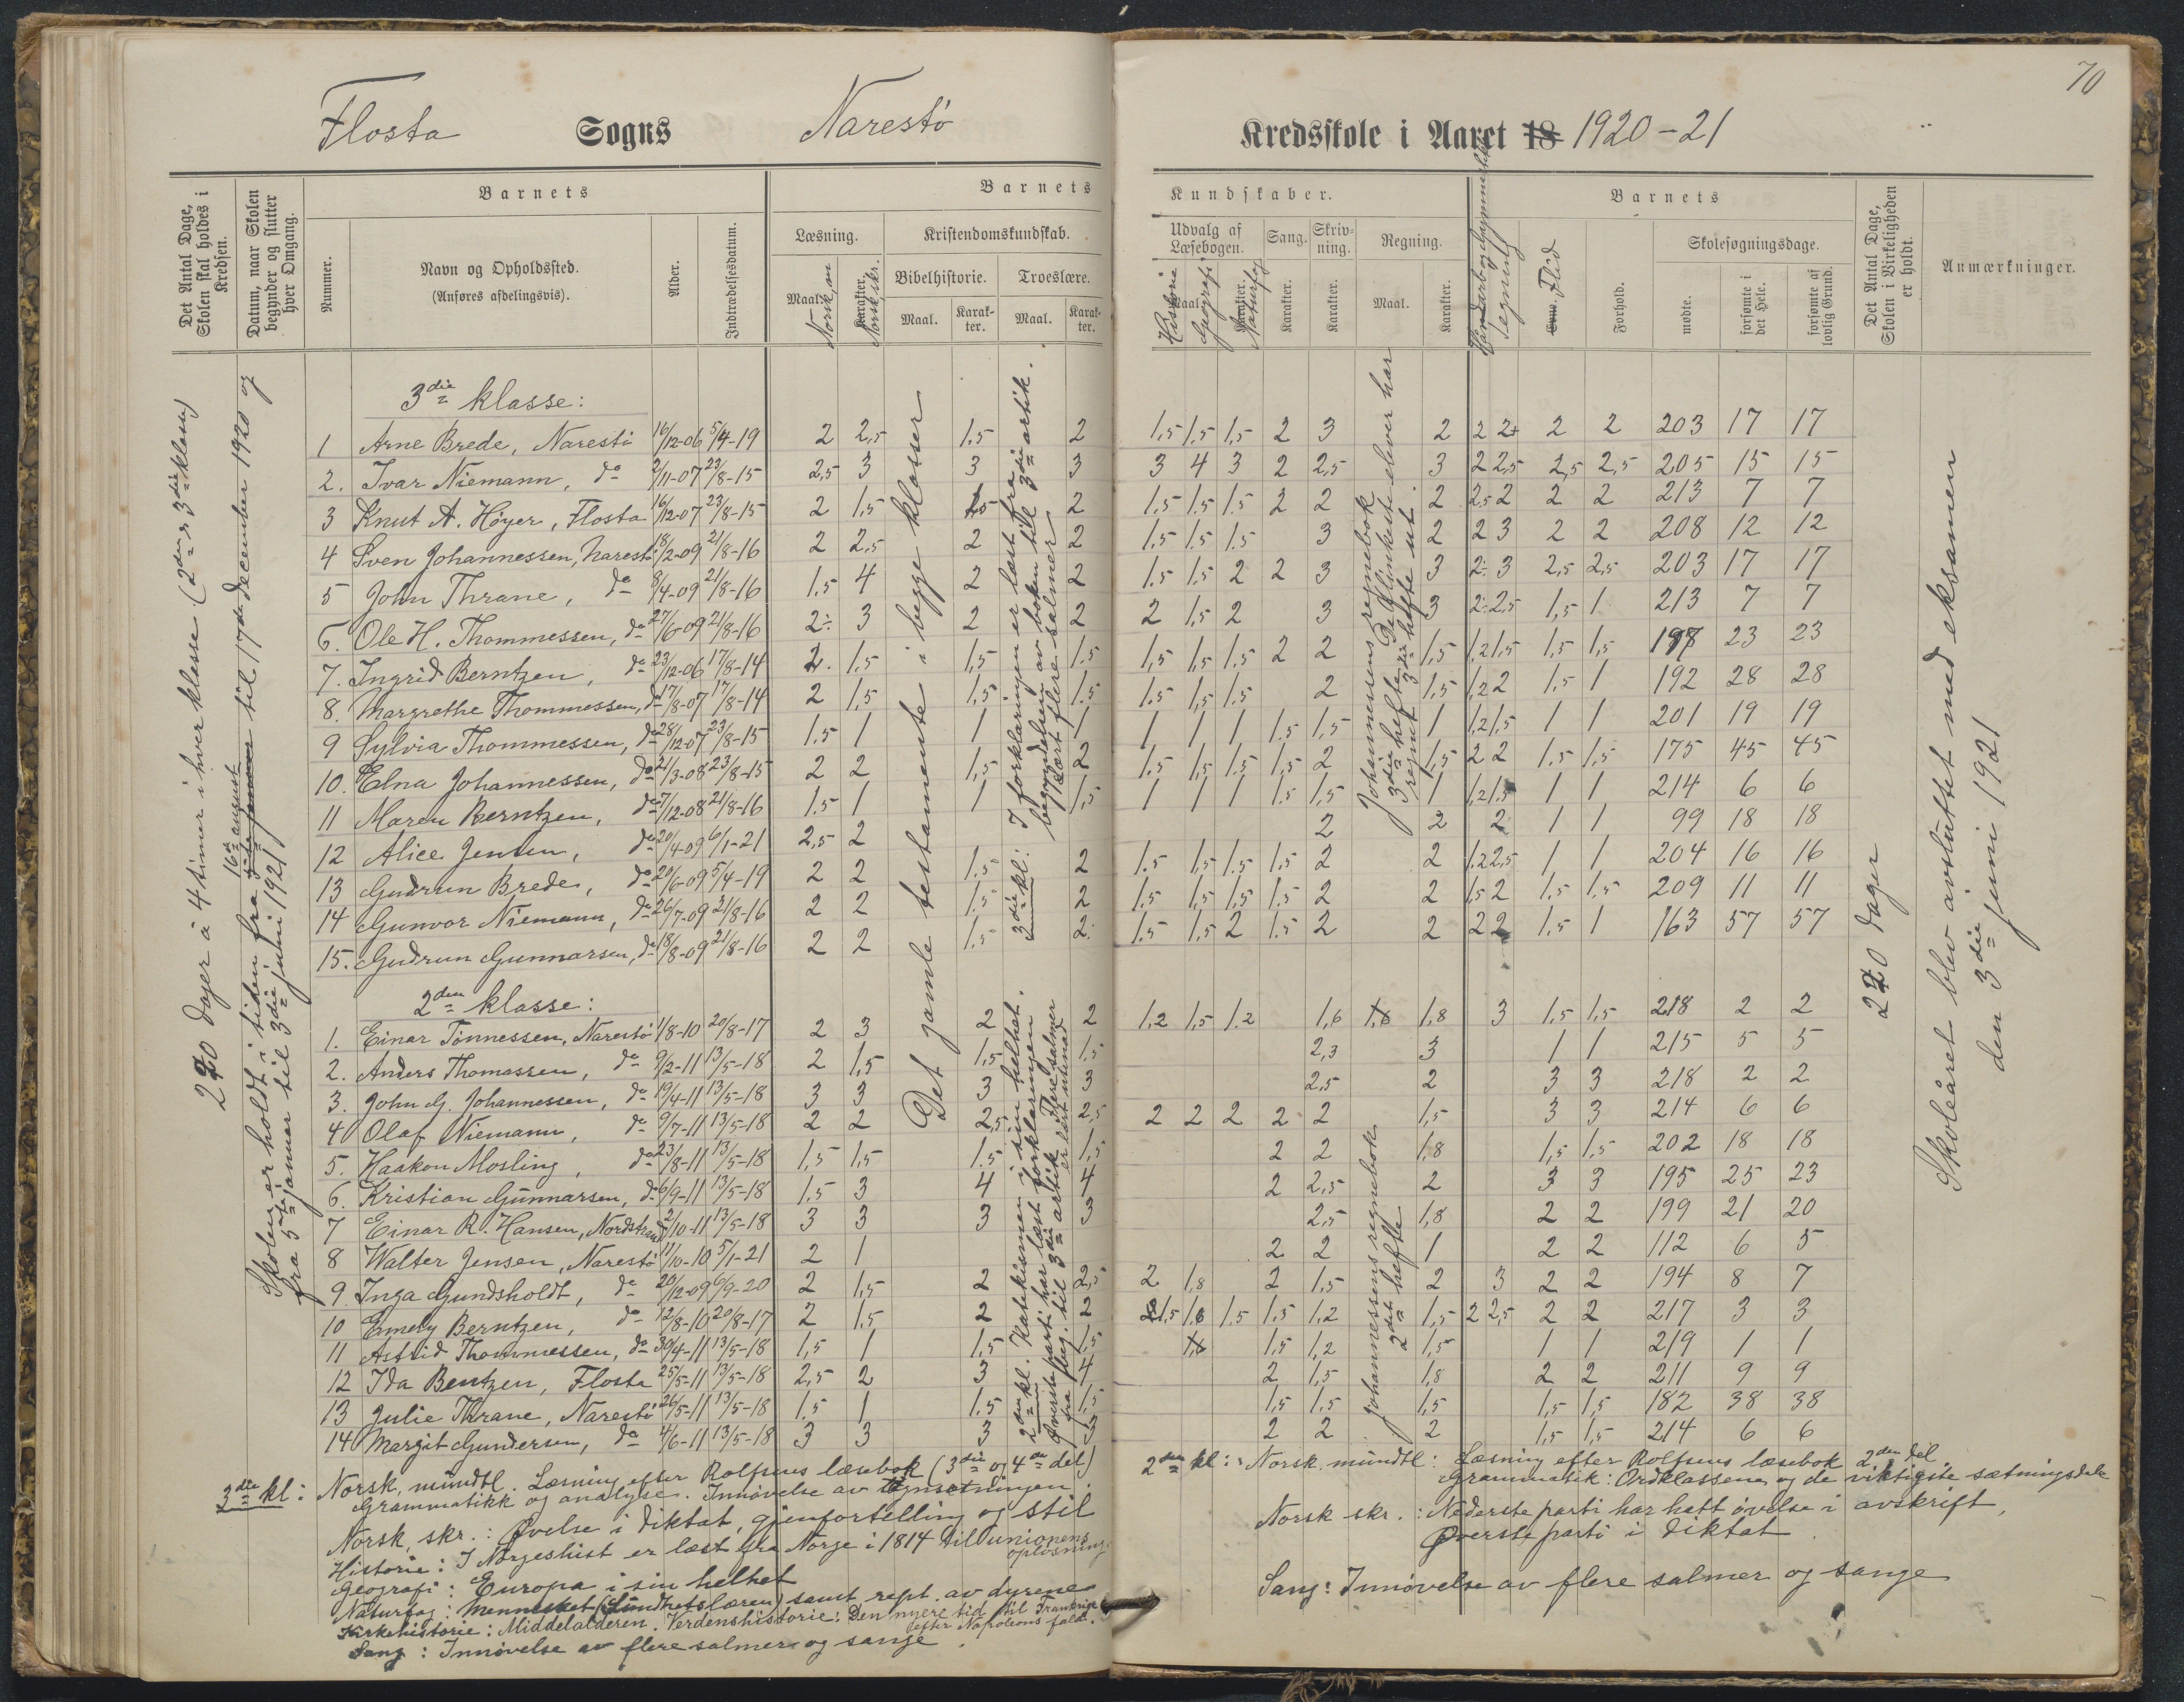 70
Flosta Sogns Narestö Kredsskole i Aaret 18 1920-21
Det Antal Dage, Skolen skal holdes i Kredsen.
Datum, naar Skolen begynder og slutter hver Omgang.
Nummer.
Barnets
Navn og Opholdssted.
(Anføres afdelingsvis).
Alder.
Indtrædelsesdatum.
Barnets Kundskaber.
Læsning.
Maal. Norsk, m
Karakter. Norsk, skr.
Kristendomskundskab.
Bibelhistorie.
Maal.
Karakter.
Troeslære.
Maal.
Karakter.
Udvalg af Læsebogen.
Maal.
Historie
Geografi
Karakter.
Naturfag
Sang.
Karakter.
Skrivning.
Karakter.
Regning.
Maal.
Karakter.
Tegning
Evne. Flid
Forhold.
Barnets
Skolesøgningsdage.
mødte.
forsømte i det Hele.
forsømte af lovlig Grund.
Det Antal Dage, Skolen i Virkeligheden er holdt.
Anmærkninger.
220 dager à 4 timer i hver klasse (2den & 3die klasse)
Skolen er holdt i tiden fra 16de august til 17de december 1920 og
fra 5te januar til 3die juni 1921
3die klasse:
1 Arne Brede, Narestö 16/12-06 5/4-19 2 2,5 1.5 2 1,5 1.5 1,5 2 3 2 2 2+ 2 2 203 17 17
2. Ivar Niemann, do 2/11-07 23/8-15 2,5 3 3 3 3 4 3 2 2,5 3 2 2,5 2,5 2,5 205 15 15
3 Knut A. Höyer, Flosta 16/12-07 23/8-15 2 1,5 1,5 2 1.5 1.5 1.5 2 2 2 2,5 2 2 2 213 7 7
4 Sven Johannessen, Narestö 18/2-09 21/8-16 2 2,5 2 2 1.5 1.5 1.5 3 2 2 3 2 2 208 12 12
5 John Thrane, do 8/4-09 21/8-16 1.5 4 2 2 1.5 1.5 2 2 3 3 2÷ 3 2,5 2,5 203 17 17
6. Ole H. Thommessen, do 27/6-09 21/8-16 2÷ 3 2 2 2 1,5 2 3 3 2÷ 2,5 1,5 1 213 7 7
7. Ingrid Berntzen, do 23/12-06 17/8-14 2. 1.5 1,5 1.5 1,5 1,5 1.5 2 2 1,5 1,2 1,5 1,5 1,5 197 23 23
8. Margrethe Thommessen, do 17/8-07 17/8-14 2 1,5 1,5 1.5 1.5 1,5 1.5 2 1,5 1,2 2 1.5 1 192 28 28
9 Sylvia Thommessen, do 28/12-07 23/8-15 1.5 1 1 1 1 1 1 1.5 1.5 1 1,2 1,5 1 1 201 19 19
10. Elna Johannessen, do 21/3-08 23/8-15 2 2 1,5 2 1.5 1,5 1.5 1,5 2 1,5 2 2 1.5 1,5 175 45 45
11 Maren Berntzen, do 7/12-08 21/8-16 1.5 1 1 1,5 1 1 1 1.5 1,5 1 1,2 1,5 1 1 214 6 6
12 Alice Jensen, do 20/4-09 6/1-21 2,5 2 2 2 2 1 1 99 18 18
13 Gudrun Brede, do 20/6-09 5/4-19 2 2 1.5 2 1.5 1,5 1.5 1.5 2 2 1.2 2,5 1 1 204 16 16
14 Gunvor Niemann, do 26/7-09 21/8-16 2 2 1.5 2 1,5 1,5 1,5 1,5 2 2 1,5 2 1.5 1.5 209 11 11
15. Gudrun Gunnarsen, do 18/8-09 21/8-16 2 2 1.5 2. 1.5 1.5 2 1.5 2 2 2 2 1.5 1 163 57 57
2den klasse:
1. Einar Tönnessen, Narestö 1/8-10 20/8-17 2 3 2 2 1,2 1,5 1.2 1,6 1,8 3 1,5 1,5 218 2 2
2. Anders Thomassen, do 9/2-11 13/5-18 2 1,5 1,5 1.5 2,3 3 1 1 215 5 5
3. John G. Johannessen, do 19/4-11 13/5-18 3 3 3 3 2,5 2 3 3 218 2 2
4 Olaf Niemann, do 9/7-11 13/5-18 2 2 2,5 2,5 2 2 2 2 2 1,5 3 3 214 6 6
5. Haakon Mosling, do 23/8-11 13/5-18 1,5 1,5 1.5 1,5 2 2 1,8 1,5 1,5 202 18 18
6. Kristian Gunnarsen, do 6/9-11 13/5-18 1.5 3 4 4 2 2,5 2 3 3 195 25 23
7 Einar R. Hansen, Nordstrand 2/10-11 13/5-18 3 3 3 3 2,5 1,8 2 2 199 21 20
8 Walter Jensen, Narestö 11/10-10 5/1-21 2 1 2 2 1 2 2 112 6 5
9 Inga Gundsholdt, do 20/12-09 6/9-20 2 1,5 2 2,5 2 1.8 2 1,5 2 3 2 2 194 8 7
10 Emely Berntzen, do 12/8-10 20/8-17 2 1,5 2 2 1,5 1,6 1,5 1,5 1,2 1,5 2 2,5 2 2 217 3 3
11 Astrid Thommessen, do 30/4-11 13/5-18 1,5 1 1,5 1,5 1,5 1,2 1,5 1 1 219 1 1
12 Ida Bentzen, Flosta 25/5-11 13/5-18 2,5 2 3 4 2 1,5 1,8 2 2 211 9 9
13 Julie Thrane, Narestö 26/5-11 13/5-18 1.5 1 1.5 1,5 1,5 1.5 1,5 1,5 1,5 182 38 38
14 Margit Gundersen, do 4/6-11 13/5-18 3 3 3 3 2 2 2 1,5 1,5 214 6 6
Det gamle testamente i begge klasser
3die kl: I forklaringen er læst fra
begyndelsen av boken til 3die artik.
Lært flere salmer
2den kl. Katekismen i sin helhet.
Øverste parti har læst forklaringen
fra beg. til 3die artik. Flere salmer
er lært utenad
Johannessens regnebok
3die hefte. De flinkeste elever har
regnet 3die hefte ut.
Johannessens regnebok
2det hefte
220 dager
Skoleåret blev avsluttet med eksamen
den 3die juni 1921
3die kl: Norsk, mündtl. Læsning efter Rolfsens læsebok (3die og 4de del)
Grammatikk og analyse. Innøvelse av tegnsetningen
Norsk, skr.: Øvelse i diktat, gjenfortelling og stil
Historie: I Norgeshist er læst fra Norge i 1814 til unionens opløsning.
Geografi: Europa i sin helhet
Naturfag: Mennesket (Sundhetslæren) samt rept. av dyrene
Kirkehistorie: Middelalderen. Verdenshistorie: Den nyere tid til Frankrige
efter Napoleons fald.
Sang: Innøvelse av flere salmer og sange.
2den kl: Norsk mündtl: Læsning efter Rolfsens læsebok 2den del
Grammatik: Ordklassene og de viktigste sætningsdele
Norsk skr.: Nederste parti har hatt øvelse i avskrift,
Øverste parti i diktat.
Sang: Innøvelse av flere salmer og sange